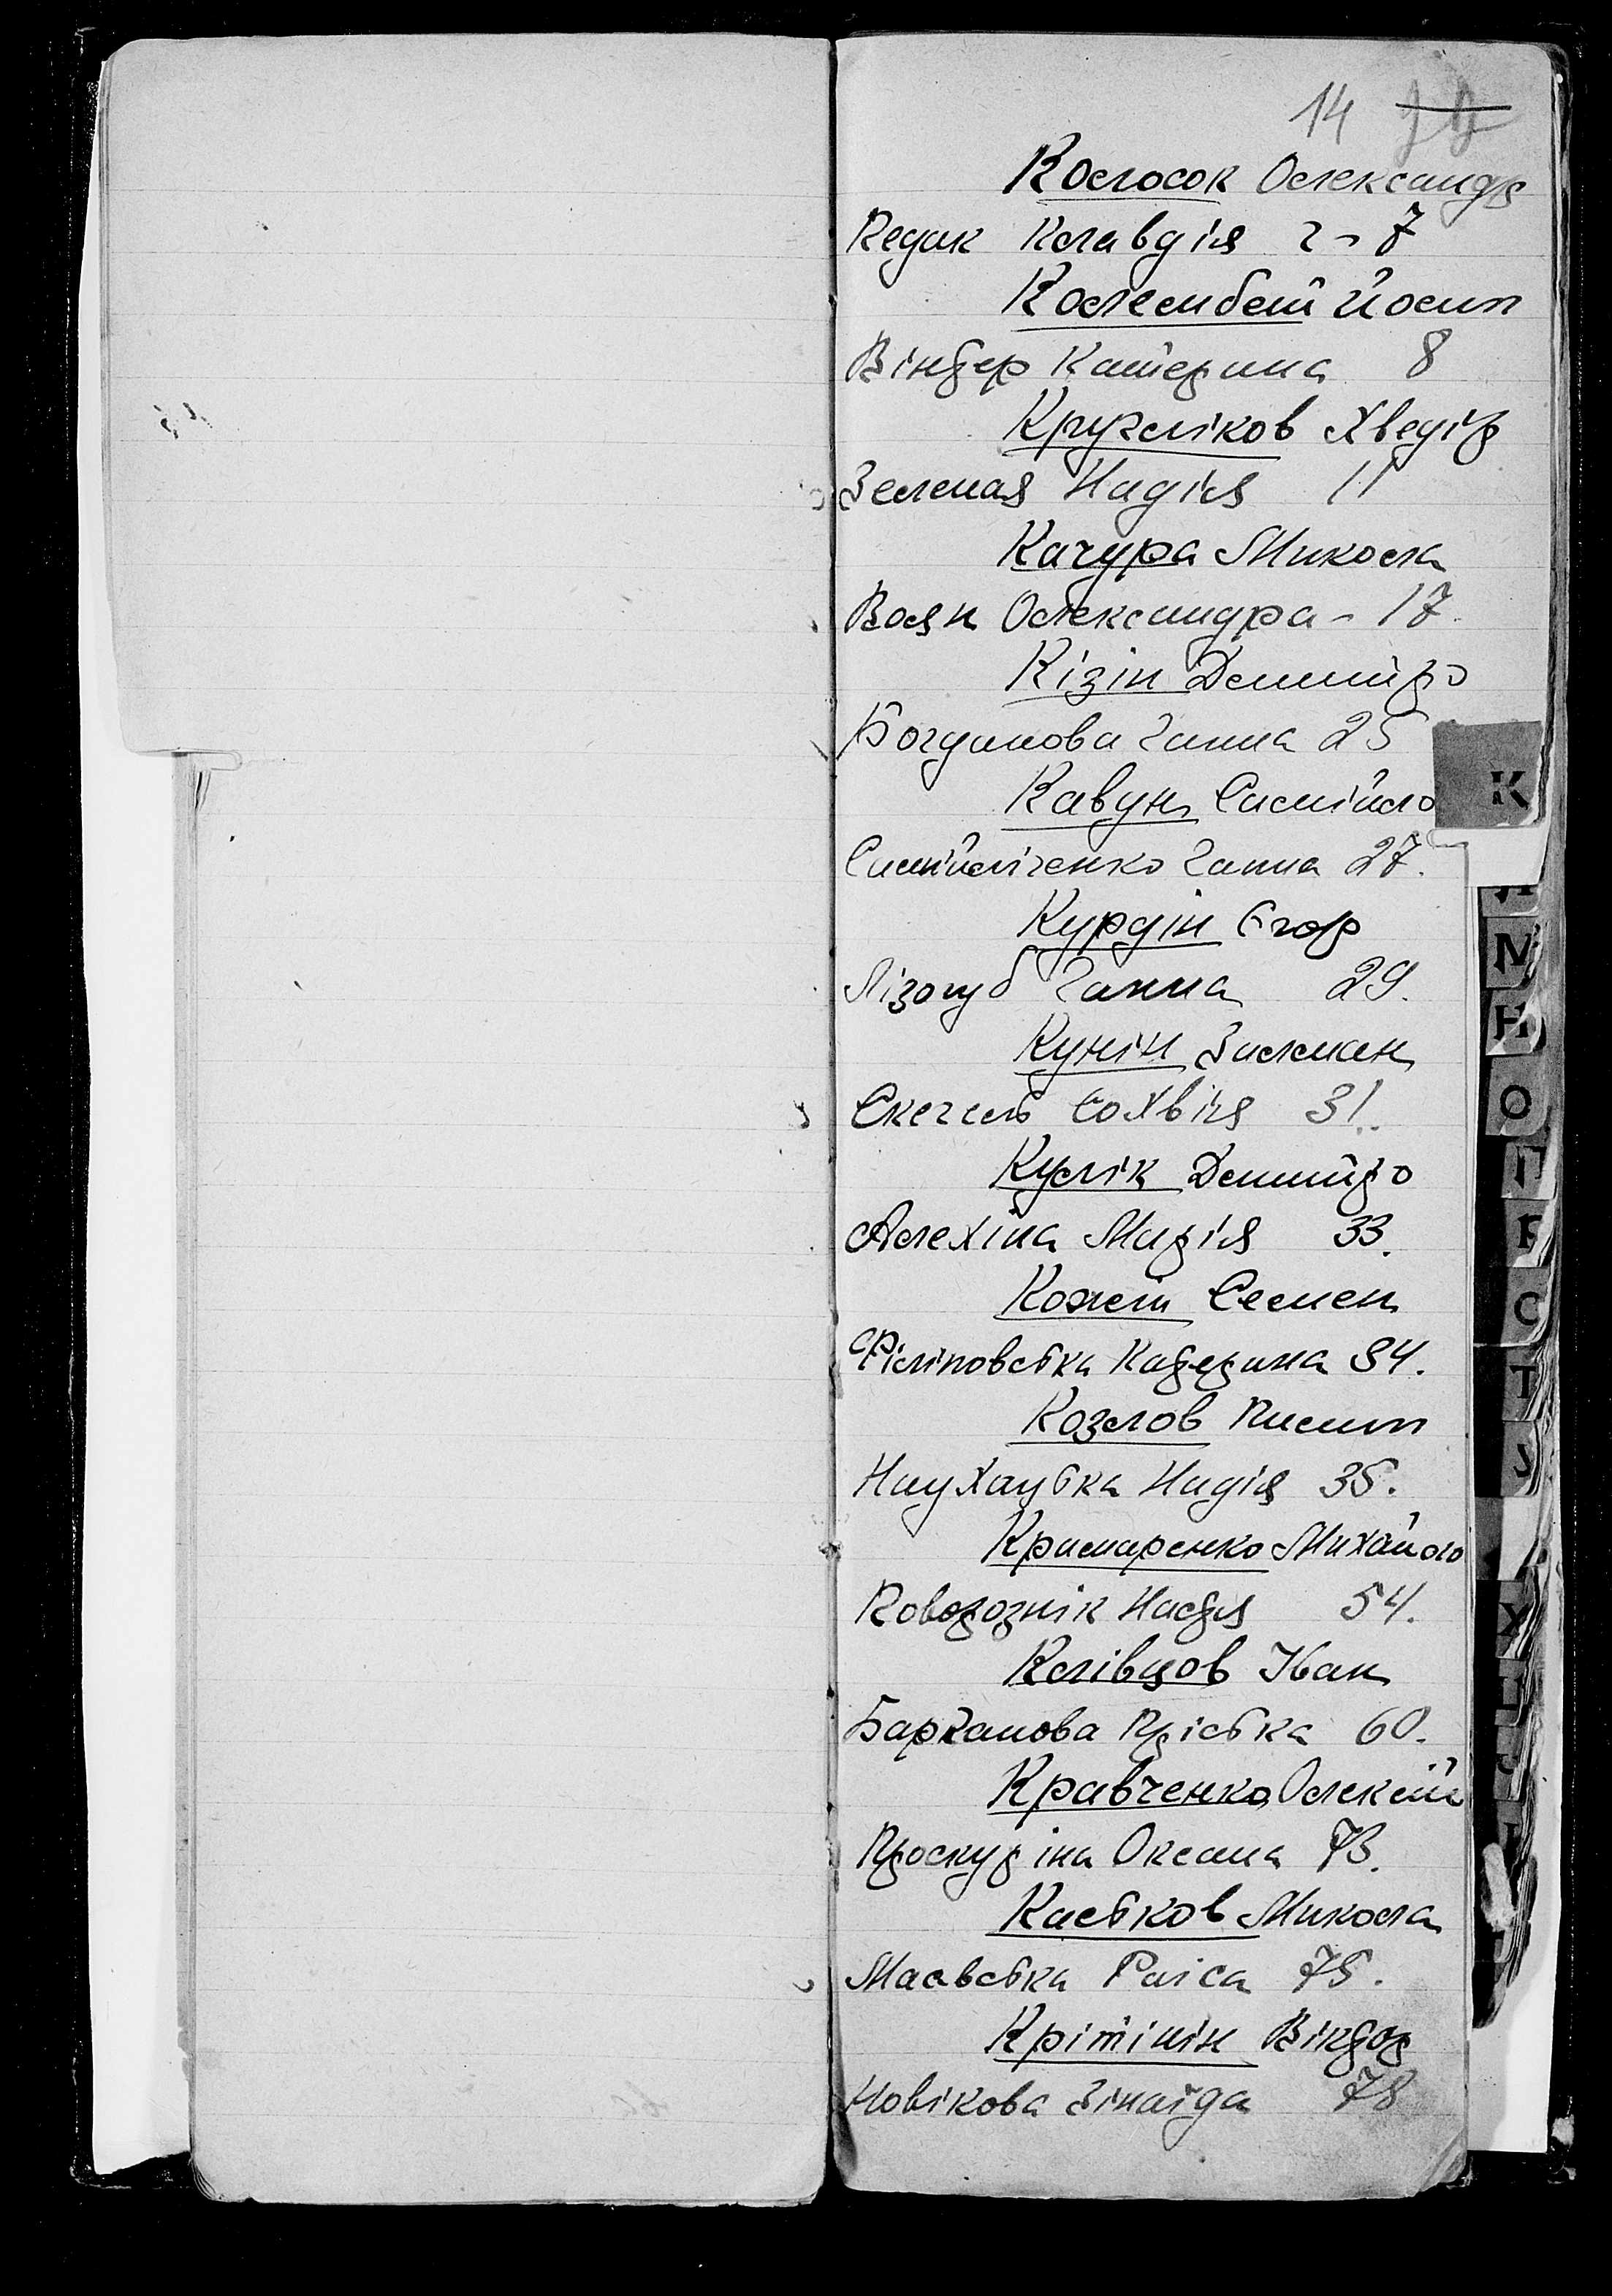 14
Колосок Олександр
Редик Клавдія г - 7
Колесибет Йосип
Віндер Катерина 8
Кругліков Хведір
Зеленая Надія 11
Качура Микола
Воян Олександра - 17
Кізін Демитро
Богданова Ганна 25
Кавун Самійло
К
Самійліченко Ганна 27.
Курдін Єгор
Лізогуб Ганна 29.
М
Н
Кунін Залман
О
Скегель Сохвія 31.
Кулік Демитро
П
Алехіна Марія 33.
Р
Кожет Семен
С
Філіповська Катерина 34.
Т
Козлов Пилип
Наухацька Надія 35.
Крамаренко Михайло
Коворозник Настя 54.
Х
Клівцов Іван
Барханова Пріська 60.
Кравченко Олексій
Проскуріна Оксана 73.
Каськов Микола
Маєвська Раїса 75.
Крітінін Віктор
Новікова Зінаїда 78